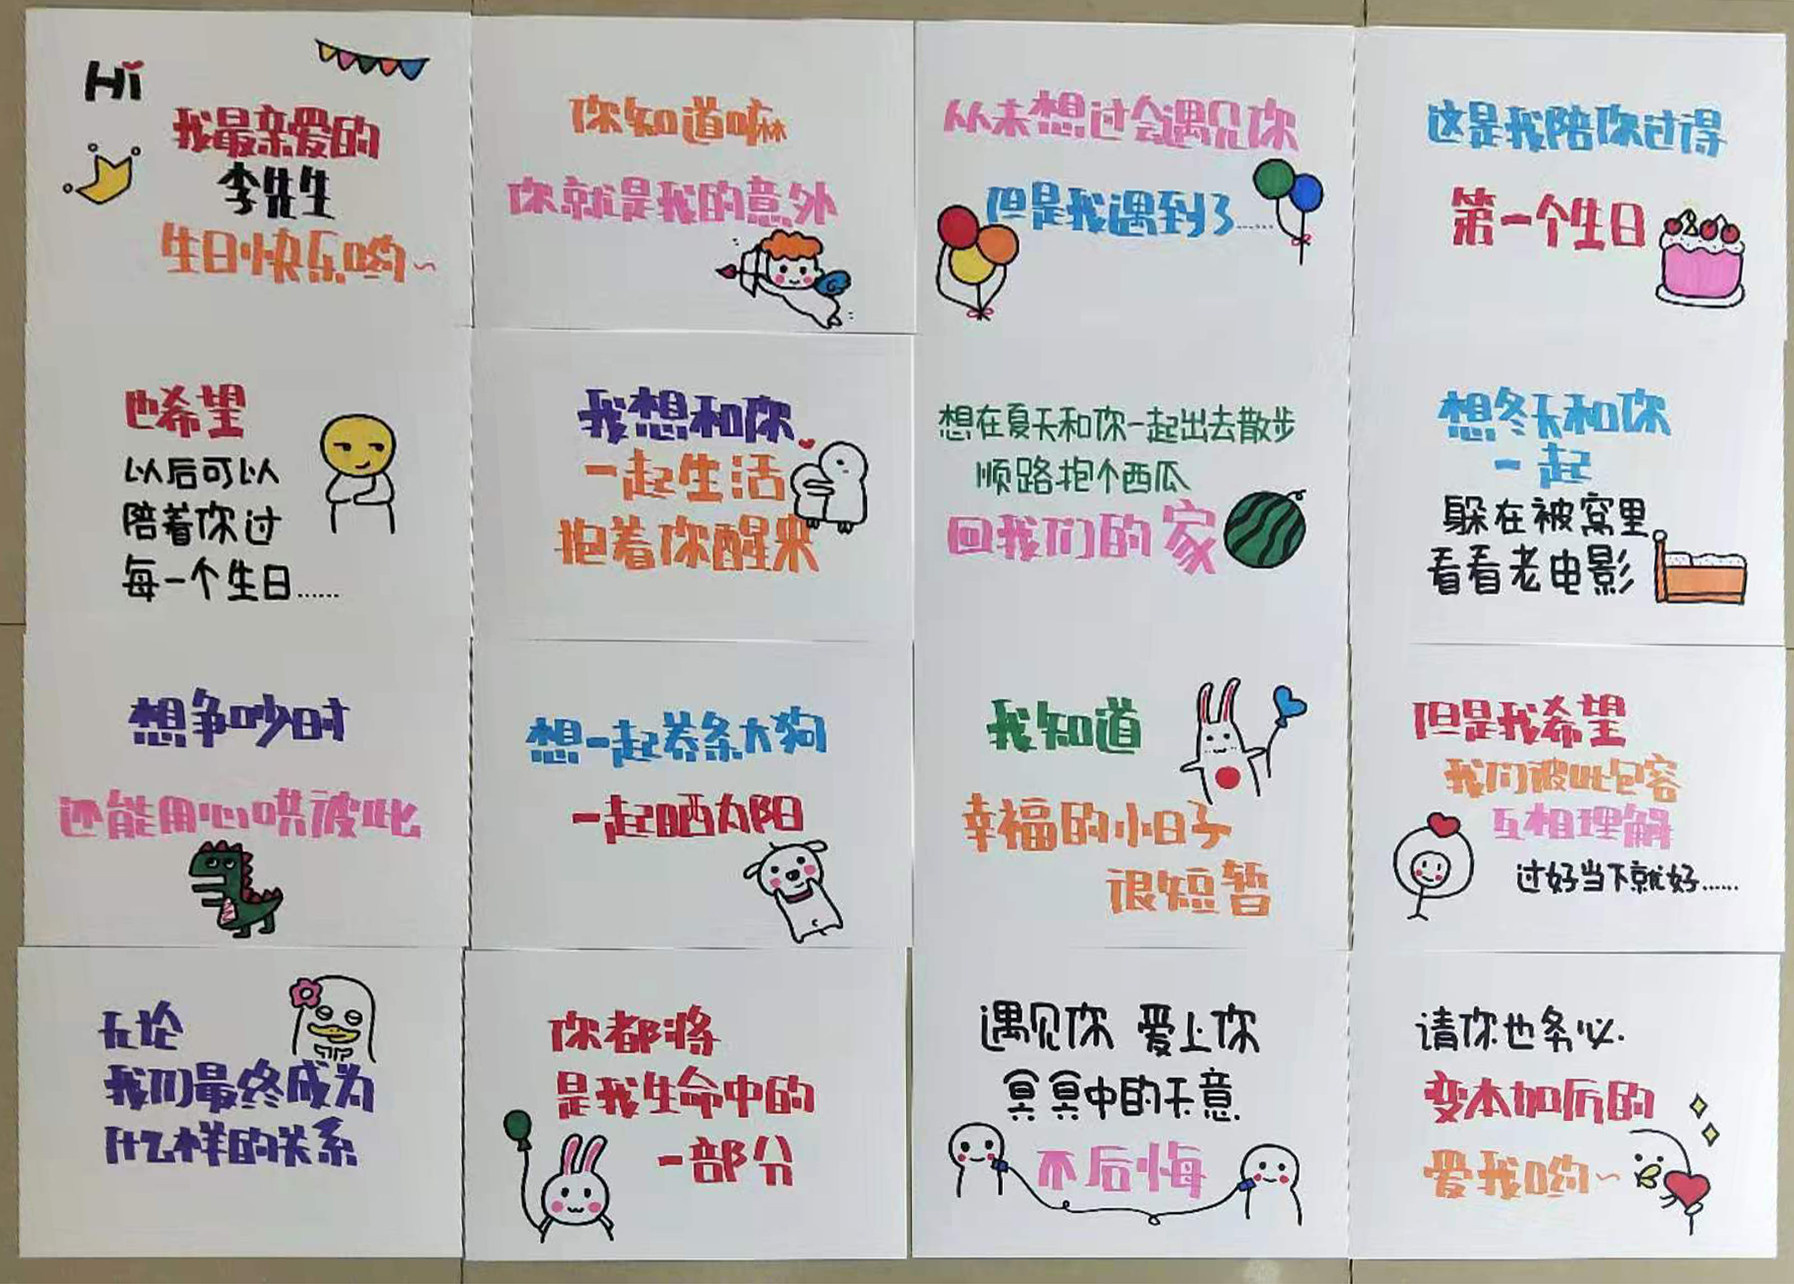 Hi
我最亲爱的
李先生
生日快乐哟~
你知道嘛
你就是我的意外
从未想过会遇见你
但是我遇到了……
这是我陪你过得
第一个生日
也希望
以后可以
陪着你过
每一个生日……
我想和你
一起生活
抱着你醒来
想在夏天和你一起出去散步
顺路抱个西瓜
回我们的家
想冬天和你
一起
躲在被窝里
看看老电影
想争吵时
还能用心哄彼此
想一起养条大狗
一起晒太阳
我知道
幸福的小日子
很短暂
但是我希望
我们彼此包容
互相理解
过好当下就好……
无论
我们最终成为
什么样的关系
你都将
是我生命中的
一部分
遇见你 爱上你
冥冥中的天意.
不后悔
请你也务必.
变本加厉的
爱我哟~